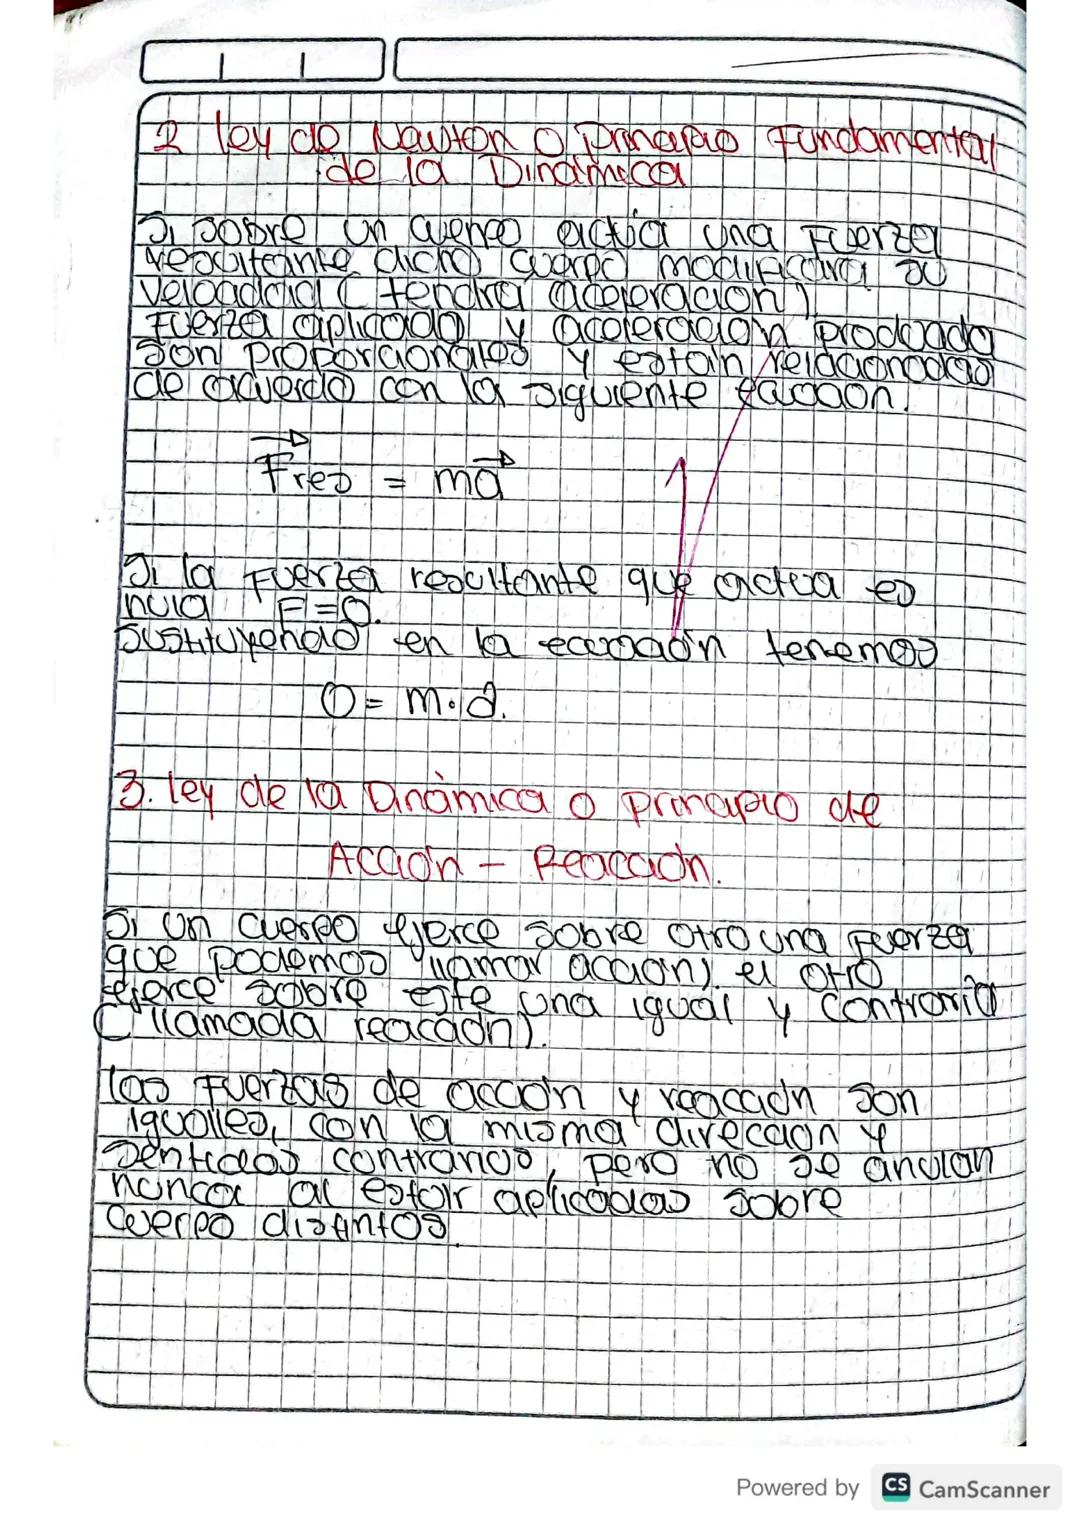 2 ley de Newton o Principio Fundamental
de la Dinámica
Si sobre un cuerpo actúa una Fuerza
resultante dicho cuerpo modificara su
velocidad ( tendra aceleracion)
Fuerza aplicada y aceleracion producida
son proporcionales y estan relacionadas
de acuerdo con la siguiente Ecuacion.
Fres = ma
Si la Fuerza resultante que actua es
nula F=0.
sustituyendo en la ecuación tenemos
0 = m·a.
3. ley de la Dinámica o principio de
Acción - Reacción.
Si un cuerpo ejerce sobre otro una Fuerza
que podemos llamar accion). el otro
ejerce sobre este una igual y contraria
( llamada reacción).
las Fuerzas de acción y reacción son
iguales, con la misma direccion y
sentidos contrarios, pero no se anulan
nunca al estar aplicadas sobre
cuerpo distintos.
Powered by CS CamScanner